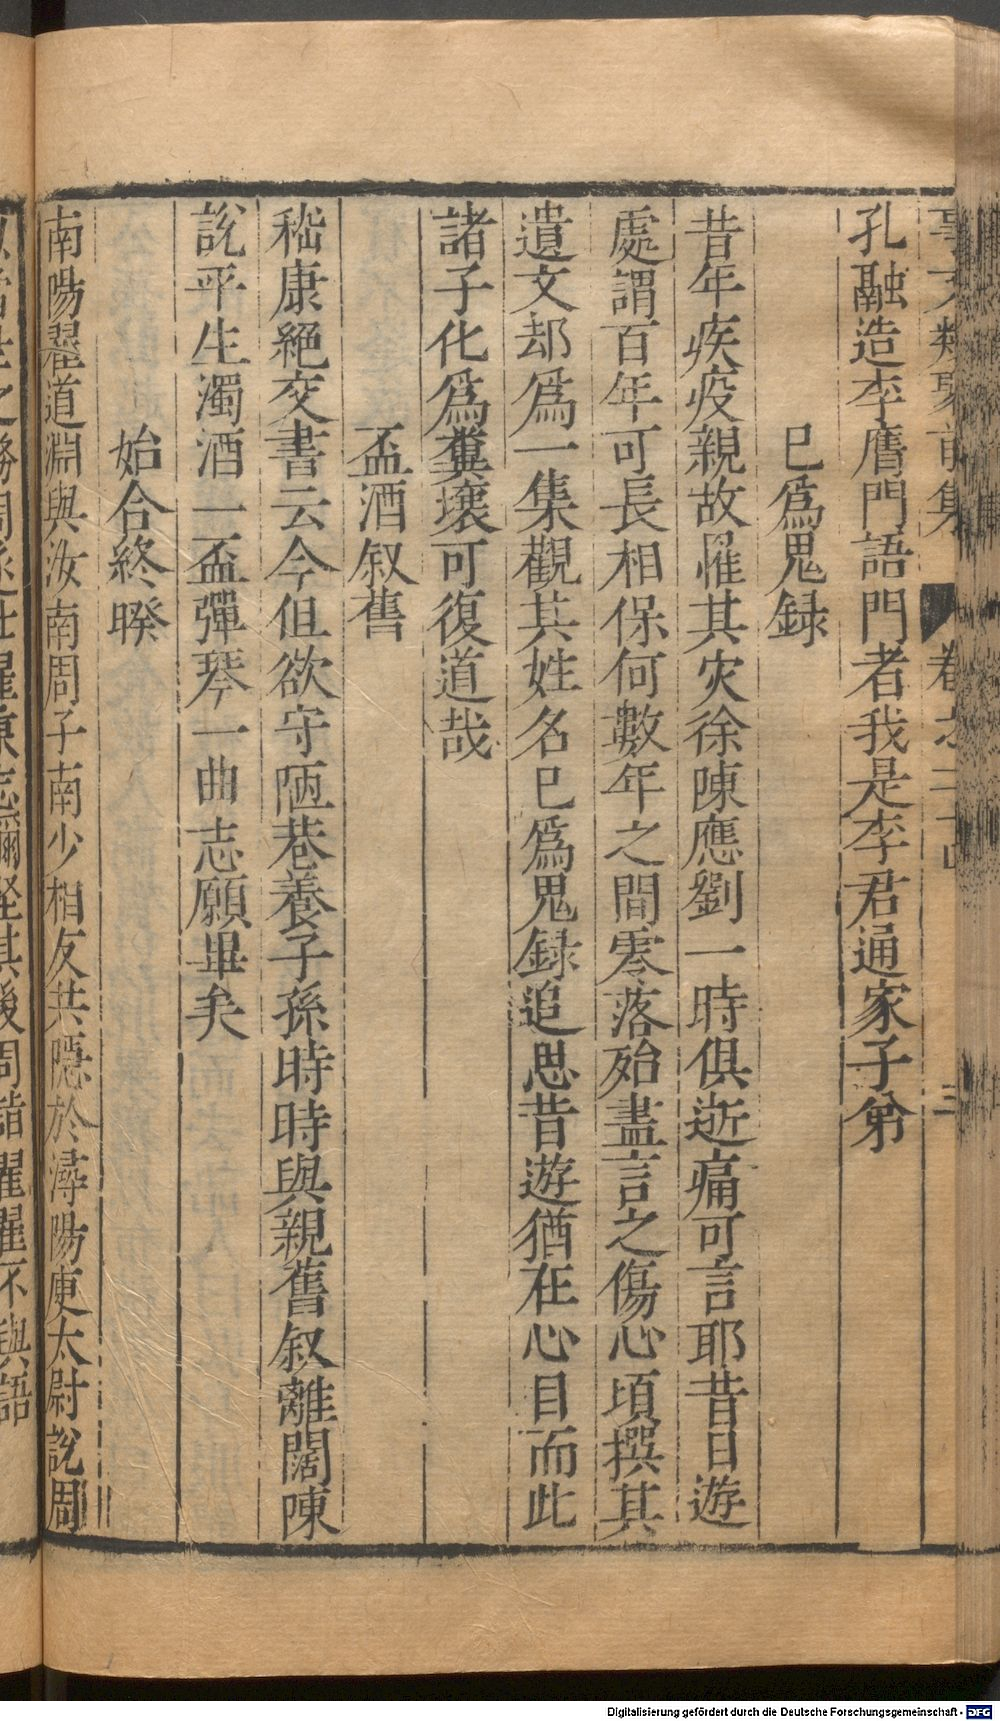 孔融造李膺門語門者我是李君通家子弟
已爲鬼録
昔年疾疫親故罹其灾徐陳應劉一時俱逝痛可言耶昔日遊
處謂百年可長相保何數年之間零落殆盡言之傷心頃撰其
遺文却爲一集觀其姓名已爲鬼録追思昔遊猶在心目而此
諸子化爲糞壤可復道哉
盃酒叙舊
嵇康絕交書云今但欲守陋巷養子孫時時與親舊叙離闊陳
說平生濁酒一盃彈琴一曲志願畢矣
始合終暌
南陽翟道淵與汝南周子南少相友共隱於潯陽庾太尉說周
Digitalisierung gefördert durch die Deutsche Forschungsgemeinschaft - DFG